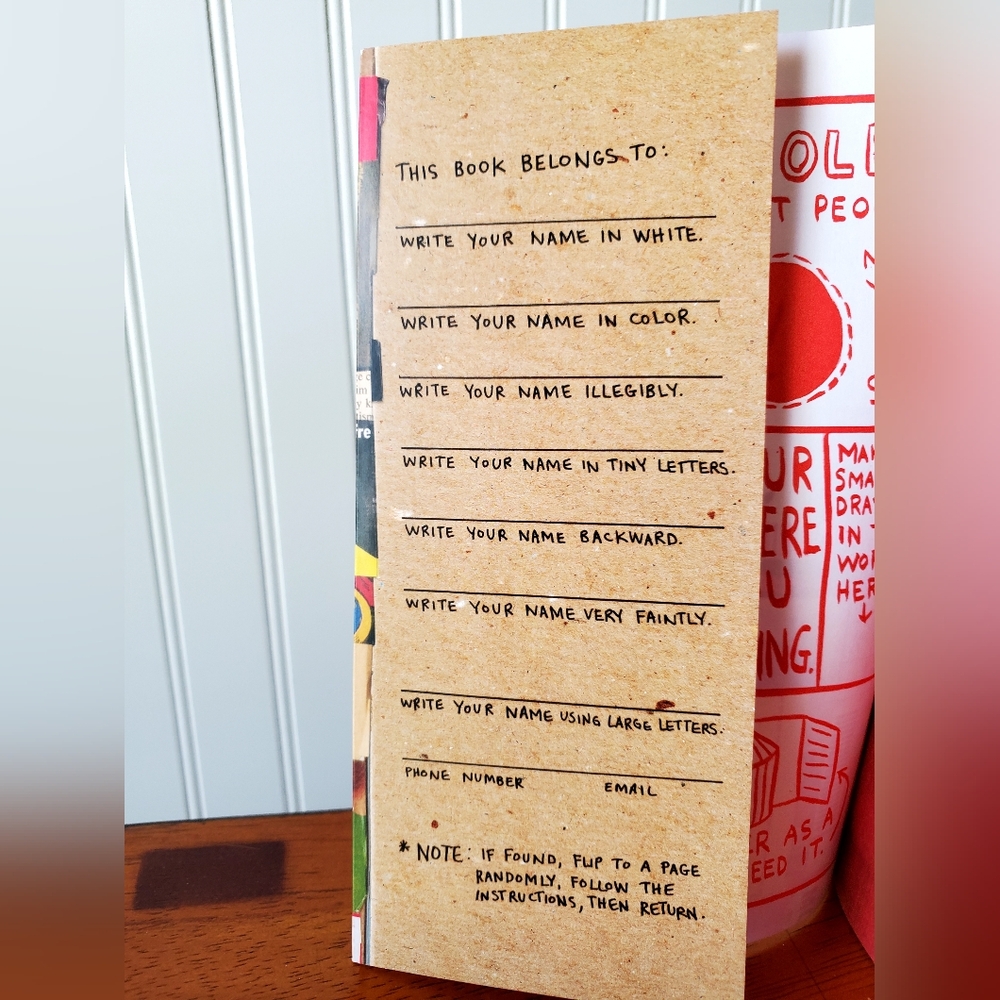 THIS BOOK BELONGS TO:
WRITE YOUR NAME IN WHITE.
WRITE YOUR NAME IN COLOR.
WRITE YOUR NAME ILLEGIBLY.
WRITE YOUR NAME IN TINY LETTERS.
WRITE YOUR NAME BACKWARD.
WRITE YOUR NAME VERY FAINTLY.
WRITE YOUR NAME USING LARGE LETTERS.
PHONE NUMBER EMAIL
* NOTE: IF FOUND, FLIP TO A PAGE
RANDOMLY, FOLLOW THE
INSTRUCTIONS, THEN RETURN.
IN
HER
AS A
IT.